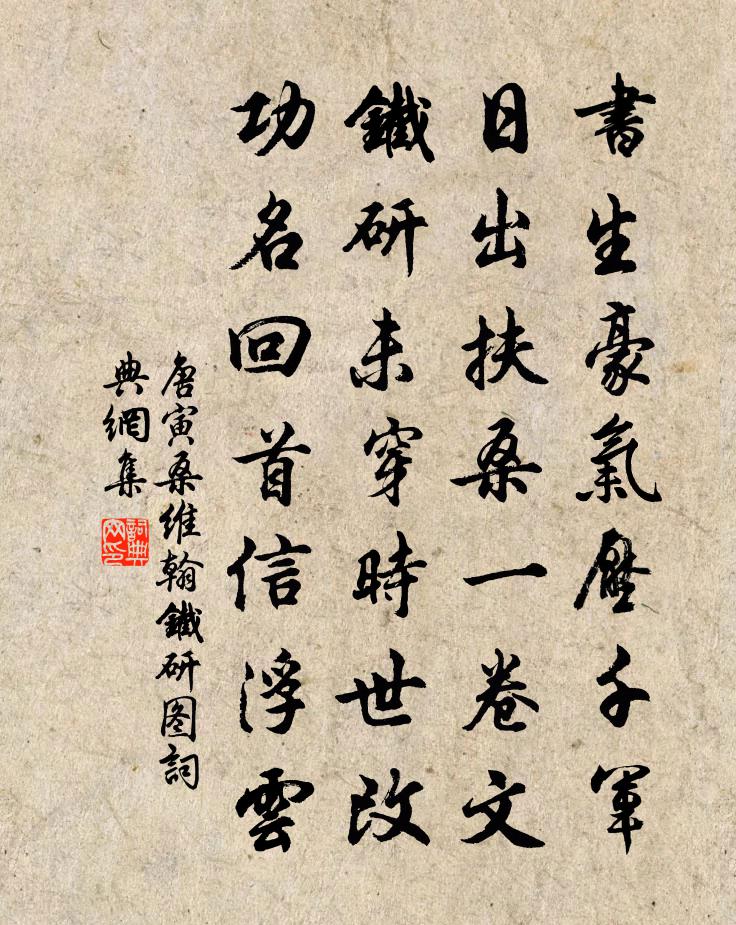 書生豪氣壓千軍
日出扶桑一卷文
鐵研未穿時世改
功名回首信浮雲
唐寅桑維翰鐵研图詞
典網集
詞典网印